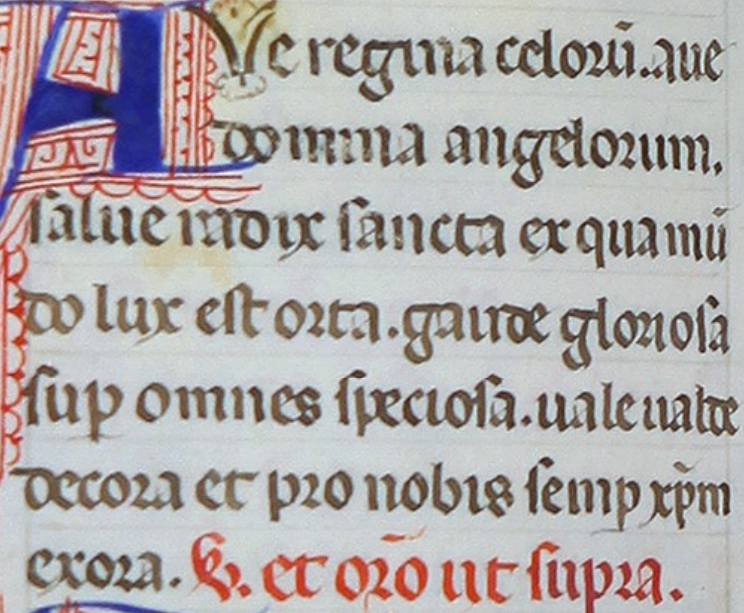 AVe regina celorū. aue
domina angelorum.
salue radix sancta ex qua mū
do lux est orta. gaude gloriosa
sup omnes speciosa. uale ualde
decora et pro nobis semp xp̄m
exora. ℣. et orō ut supra.